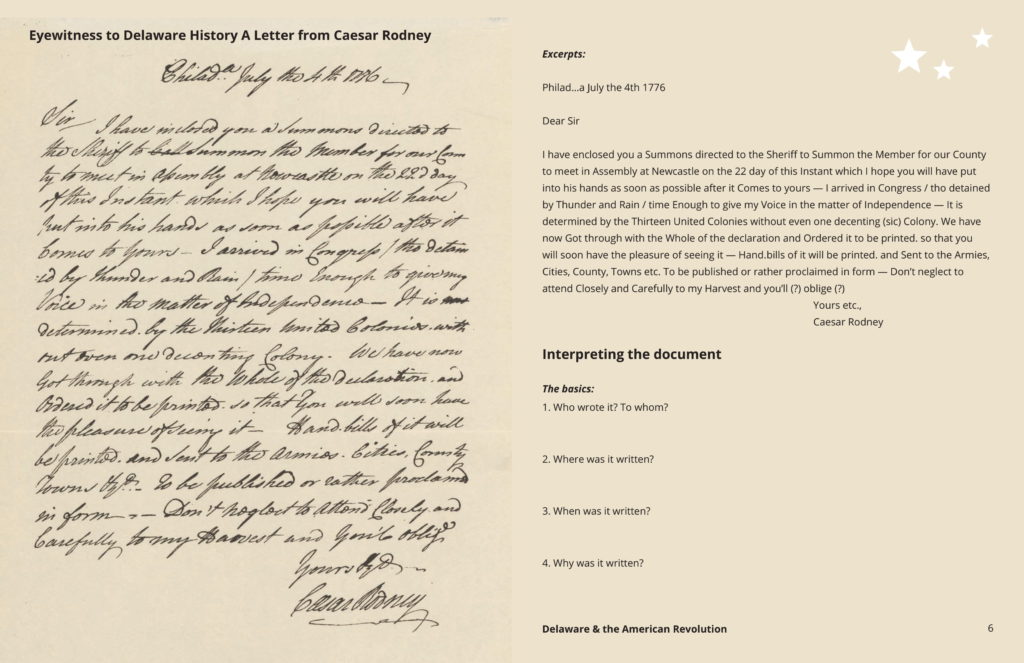 Eyewitness to Delaware History A Letter from Caesar Rodney
Philad.a July the 4th 1776
Sir
I have inclosed you a Summons directed to
the Sheriff to call Summon the Member for our Coun
ty to meet in Assembly at Newcastle on the 22d day
of this Instant which I hope you will have
put into his hands as soon as possible after it
Comes to yours — I arrived in Congress / tho detain
ed by thunder and Rain / time Enough to give my
Voice in the matter of Independence — It is
determined by the Thirteen United Colonies with
out even one decenting Colony. We have now
Got through with the Whole of the declaration and
Ordered it to be printed. so that You will soon have
the pleasure of seeing it — Hand.bills of it will
be printed. and Sent to the Armies. Cities, County
Towns &c. — To be published or rather proclaimed
in form — Don't neglect to Attend Closely and
Carefully to my Harvest and You'l oblige
Yours &c.
Caesar Rodney
Excerpts:
Philad...a July the 4th 1776
Dear Sir
I have enclosed you a Summons directed to the Sheriff to Summon the Member for our County
to meet in Assembly at Newcastle on the 22 day of this Instant which I hope you will have put
into his hands as soon as possible after it Comes to yours — I arrived in Congress / tho detained
by Thunder and Rain / time Enough to give my Voice in the matter of Independence — It is
determined by the Thirteen United Colonies without even one decenting (sic) Colony. We have
now Got through with the Whole of the declaration and Ordered it to be printed. so that you
will soon have the pleasure of seeing it — Hand.bills of it will be printed. and Sent to the Armies,
Cities, County, Towns etc. To be published or rather proclaimed in form — Don't neglect to
attend Closely and Carefully to my Harvest and you'll (?) oblige (?)
Yours etc.,
Caesar Rodney
Interpreting the document
The basics:
1. Who wrote it? To whom?
2. Where was it written?
3. When was it written?
4. Why was it written?
Delaware & the American Revolution
6